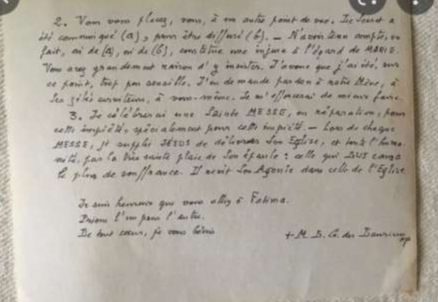 2. Vous vous placez, vous, à un autre point de vue. Le Secret a
été communiqué (a), pour être diffusé (b). – N'avoir tenu compte, en
fait, ni de (a), ni de (b), constitue une injure à l'égard de MARIE.
Vous avez grandement raison d'y insister. J'avoue que j'ai été, sur
ce point, trop peu sensible. J'en demande pardon à notre Mère, à
Ses zélés serviteurs, à vous-même. Je m'efforcerai de mieux faire.
3. Je célébrerai une Sainte MESSE, en réparation, pour
cette impiété, spécialement pour cette impiété. – Lors de chaque
MESSE, je supplie JÉSUS de délivrer Son Église, et toute l'huma-
nité, par la très sainte plaie de Son épaule : celle qui LUI causa
le plus de souffrance. Il revit Son Agonie dans celle de l'Église.
Je suis heureux que vous alliez à Fatima.
Prions l'un pour l'autre.
De tout cœur, je vous bénis
+ M. L. G. des Lauriers